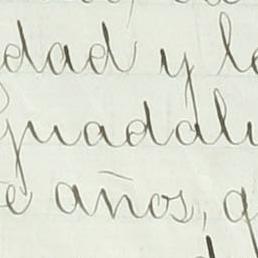 dad y le
guadalu
e años, q